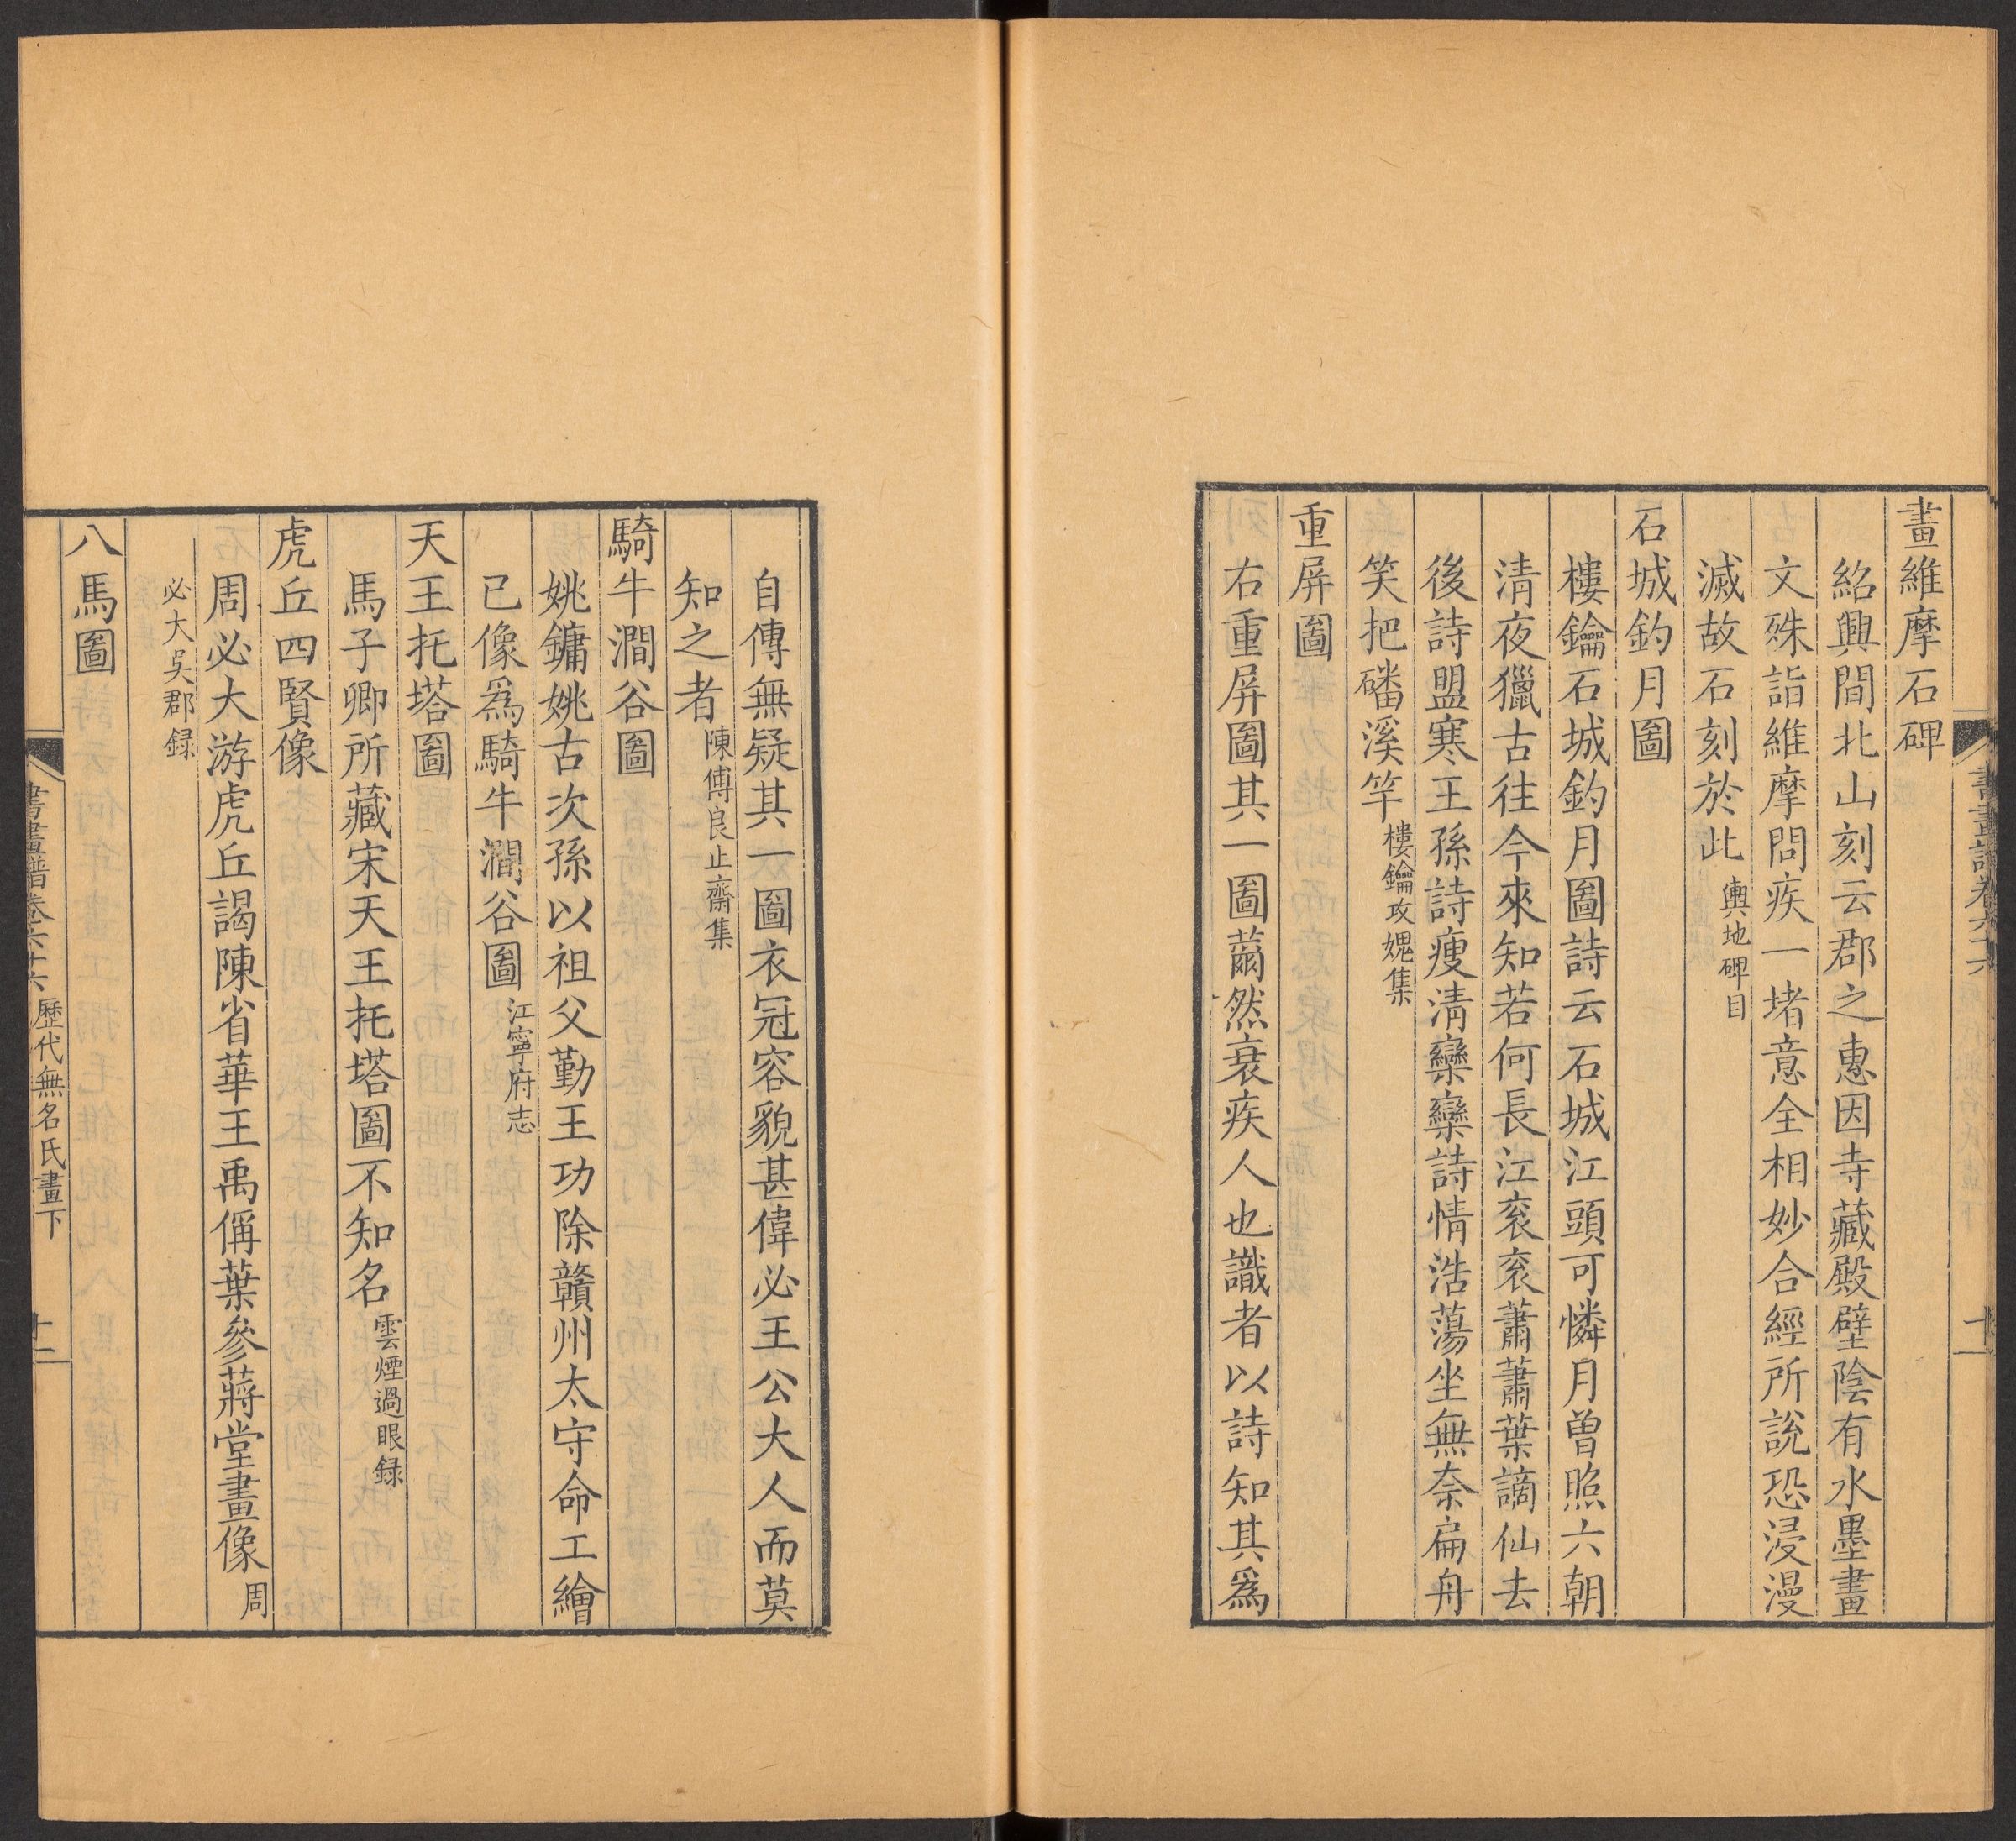 畫維摩石碑
紹興間北山刻云郡之惠因寺藏殿壁陰有水墨畫
文殊詣維摩問疾一堵意全相妙合經所說恐浸漫
滅故石刻於此輿地碑目
石城釣月圖
樓鑰石城釣月圖詩云石城江頭可憐月曾照六朝
清夜獵古往今來知若何長江袞袞蕭蕭葉謫仙去
後詩盟寒王孫詩瘦清欒欒詩情浩蕩坐無奈扁舟
笑把磻溪竿樓鑰攻媿集
重屏圖
右重屏圖其一圖薾然衰疾人也識者以詩知其爲
自傳無疑其一圖衣冠容貌甚偉必王公大人而莫
知之者陳傅良止齋集
騎牛澗谷圖
姚鏞姚古次孫以祖父勤王功除贛州太守命工繪
已像爲騎牛澗谷圖江寧府志
天王托塔圖
馬子卿所藏宋天王托塔圖不知名雲煙過眼録
虎丘四賢像
周必大游虎丘謁陳省華王禹偁葉參蔣堂畫像周
必大吳郡録
八馬圖
書畫譜卷六十六 歷代無名氏畫下 十二